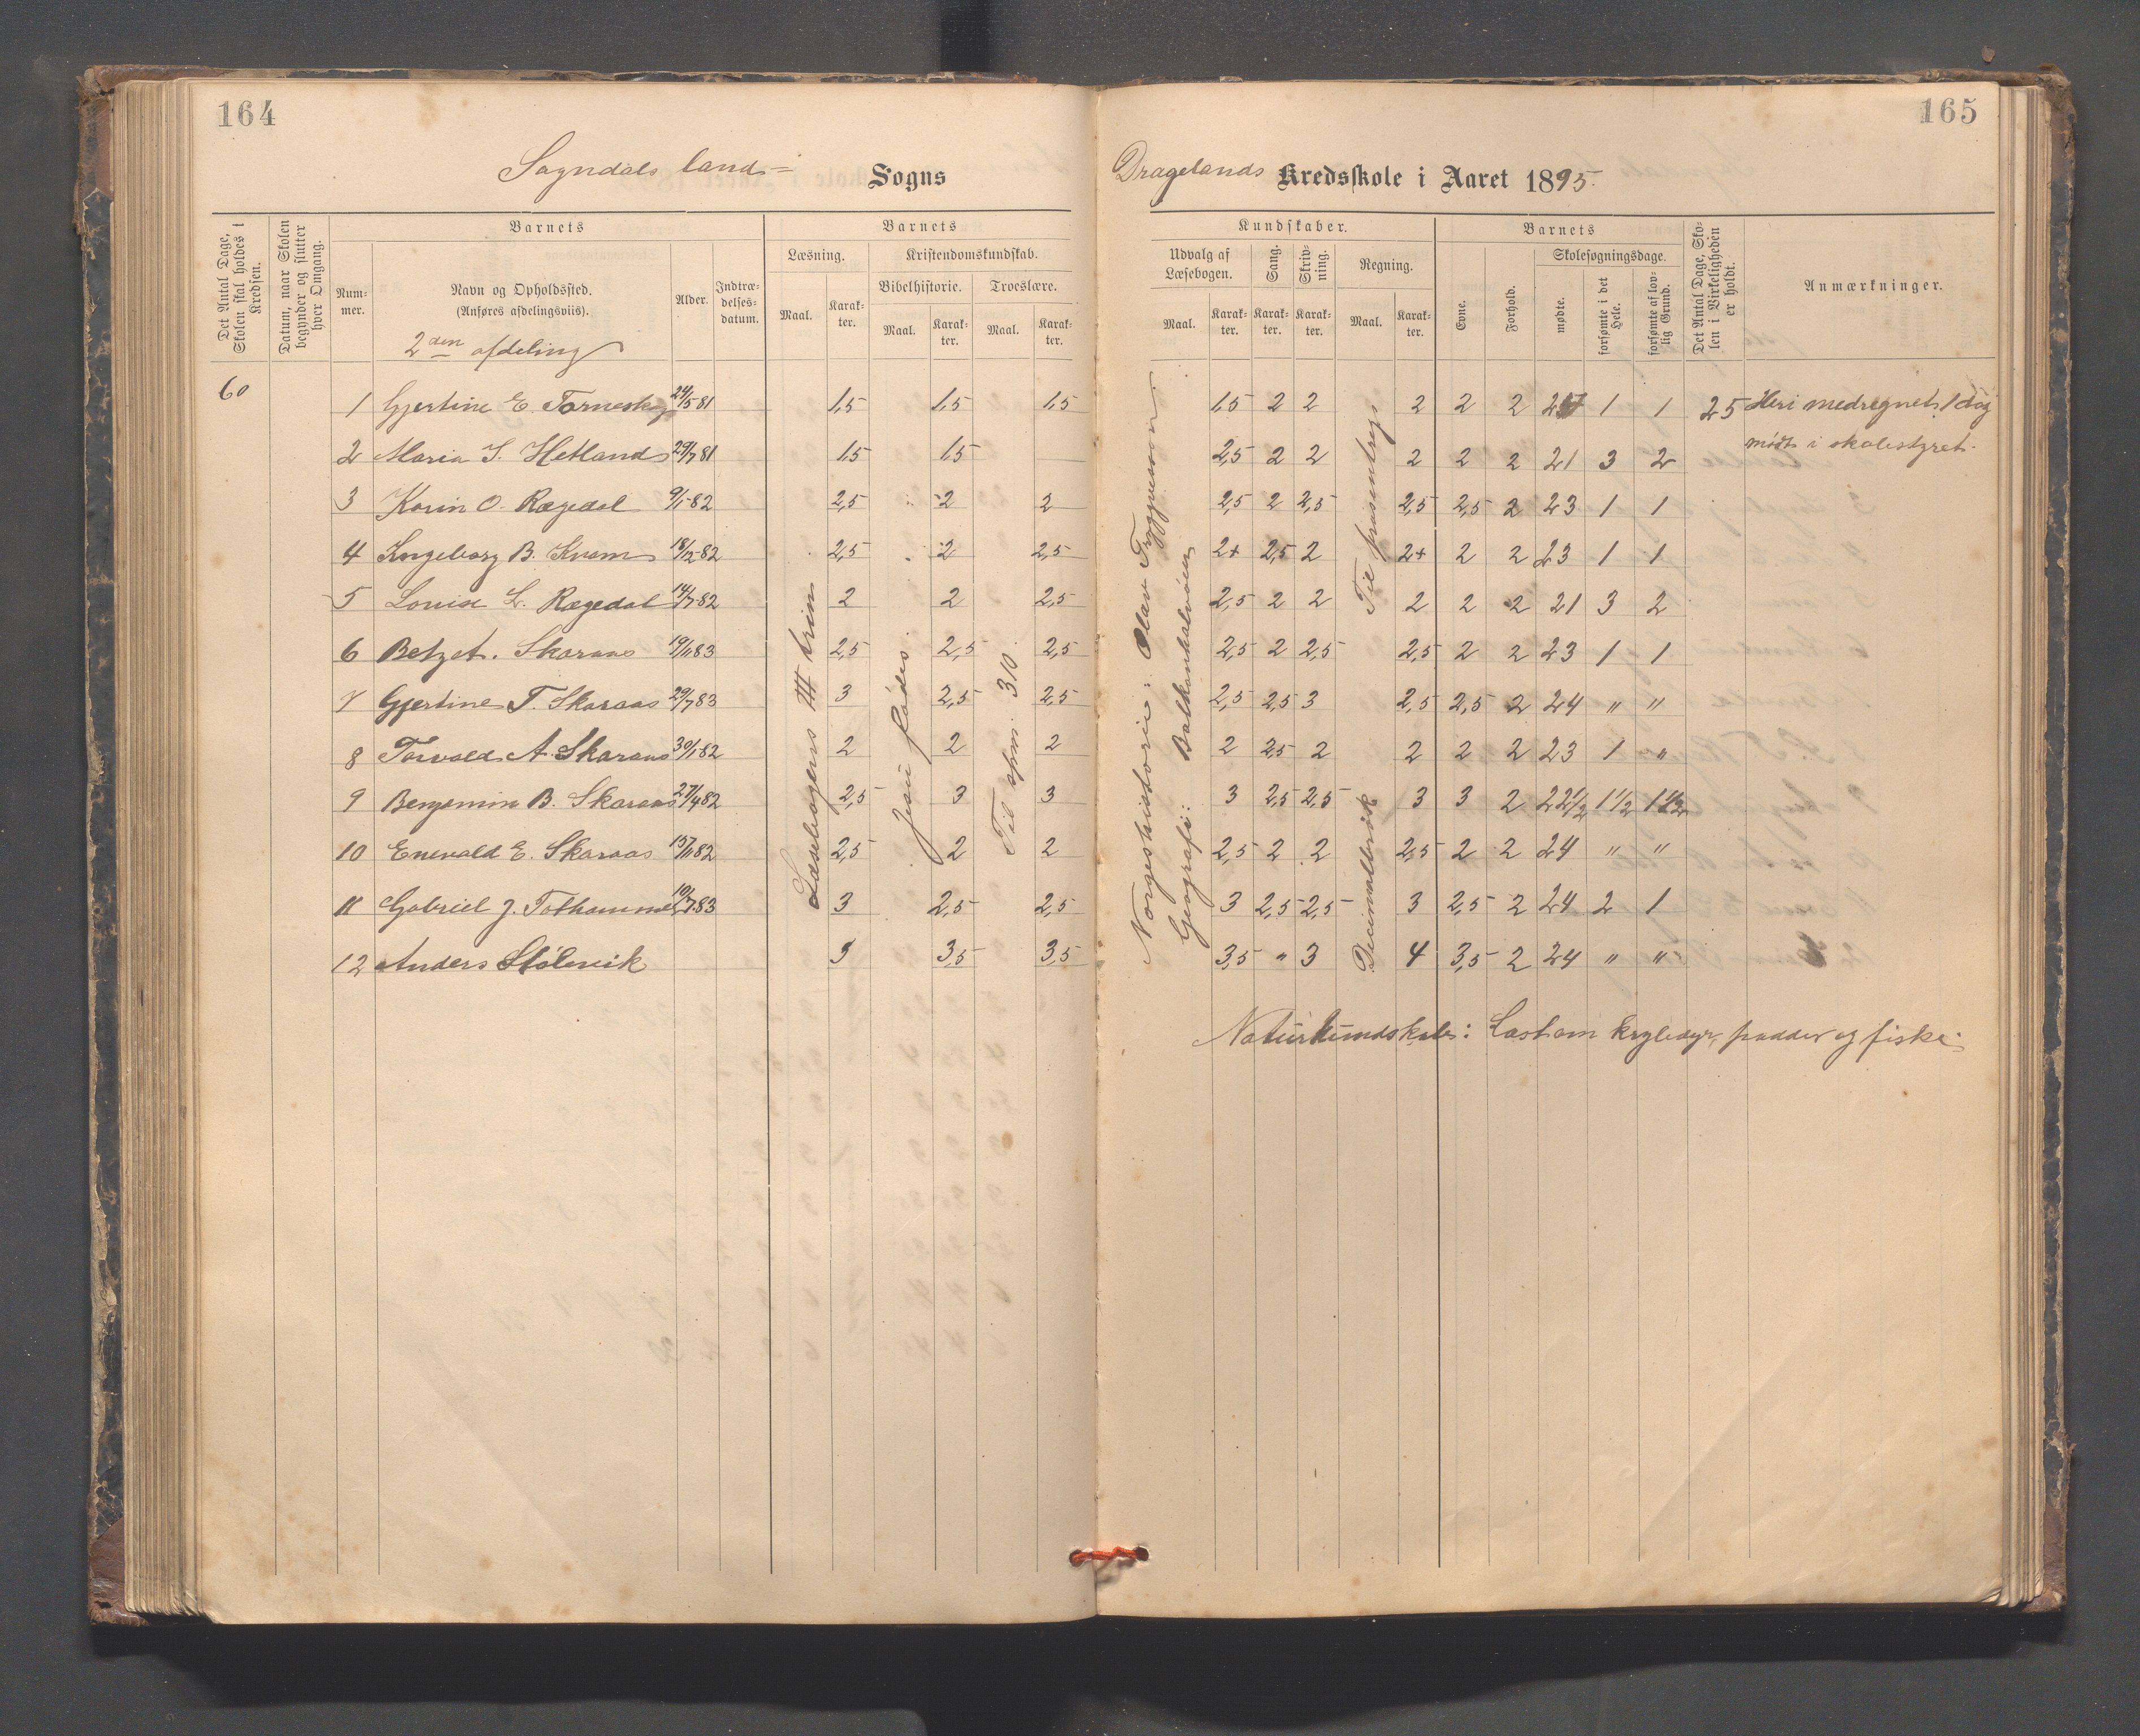 164
165
Sogndals land- Sogns
Dragelands Kredsskole i Aaret 1895.
Det Antal Dage, Skolen skal holdes i Kredsen.
Datum, naar Skolen begynder og slutter hver Omgang.
Barnets
Nummer.
Navn og Opholdssted.
(Anføres afdelingsviis).
2den afdeling
Alder.
Indtrædelsesdatum.
Barnets
Læsning.
Maal.
Karakter.
Kristendomskundskab.
Bibelhistorie.
Maal.
Karakter.
Troeslære.
Maal.
Karakter.
Kundskaber.
Udvalg af Læsebogen.
Maal.
Karakter.
Sang.
Karakter.
Skrivning.
Karakter.
Regning.
Maal.
Karakter.
Barnets
Evne.
Forhold.
Skolesøgningsdage.
mødte.
forsømte i det Hele.
forsømte af lovlig Grund.
Det Antal Dage, Skolen i Virkeligheden er holdt.
Anmærkninger.
60
1 Gjertine E. Torneskog 24/5-81 1,5 1,5 1,5 1,5 2 2 2 2 2 1 1 25 Heri medregnet 1 dag
2 Maria S. Hetland 29/7 81 1,5 1,5 2,5 2 2 2 2 2 21 3 2 mødt i skolestyret.
3 Karin O. Rægedal 9/1-82 2,5 2 2 2,5 2 2,5 2,5 2,5 2 23 1 1
4 Ingeborg B. Kvam 18/12-82 2,5 2 2,5 2+ 2,5 2 2+ 2 2 23 1 1
5 Louise L. Rægedal 14/7-82 2 2 2,5 2,5 2 2 2 2 2 21 3 2
6 Betzet. Skaraas 19/11 83 2,5 2,5 2,5 2,5 2 2,5 2,5 2 2 23 1 1
7 Gjertine T. Skaraas 29/7 83 3 2,5 2,5 2,5 2,5 3 2,5 2,5 2 24 " "
8 Torvald A. Skaraas 30/1-82 2 2 2 2 2,5 2 2 2 2 23 1 "
9 Benjamin B. Skaraas 27/4 82 2,5 3 3 3 2,5 2,5 3 3 2 22 1/2 1 1/2 1 1/2
10 Enevald E. Skaraas 15/11 82 2,5 2 2 2,5 2 2 2,5 2 2 24 " "
11 Gabriel J. Tothammer 19/7.83 3 2,5 2,5 3 2,5 2,5 3 2,5 2 24 2 1
12 Anders Stølsvik 3 3,5 3,5 3,5 " 3 4 3,5 2 24 " "
Læsebogens III trin
Jesu fødes.
Til spm. 310.
Norgeshistorie: Olav Trygvesson.
Geografi: Balkanhalvøen
Decimalbrøk
Til prosentreg
Naturkundskab: Læst om krybdyr, padder og fiske.